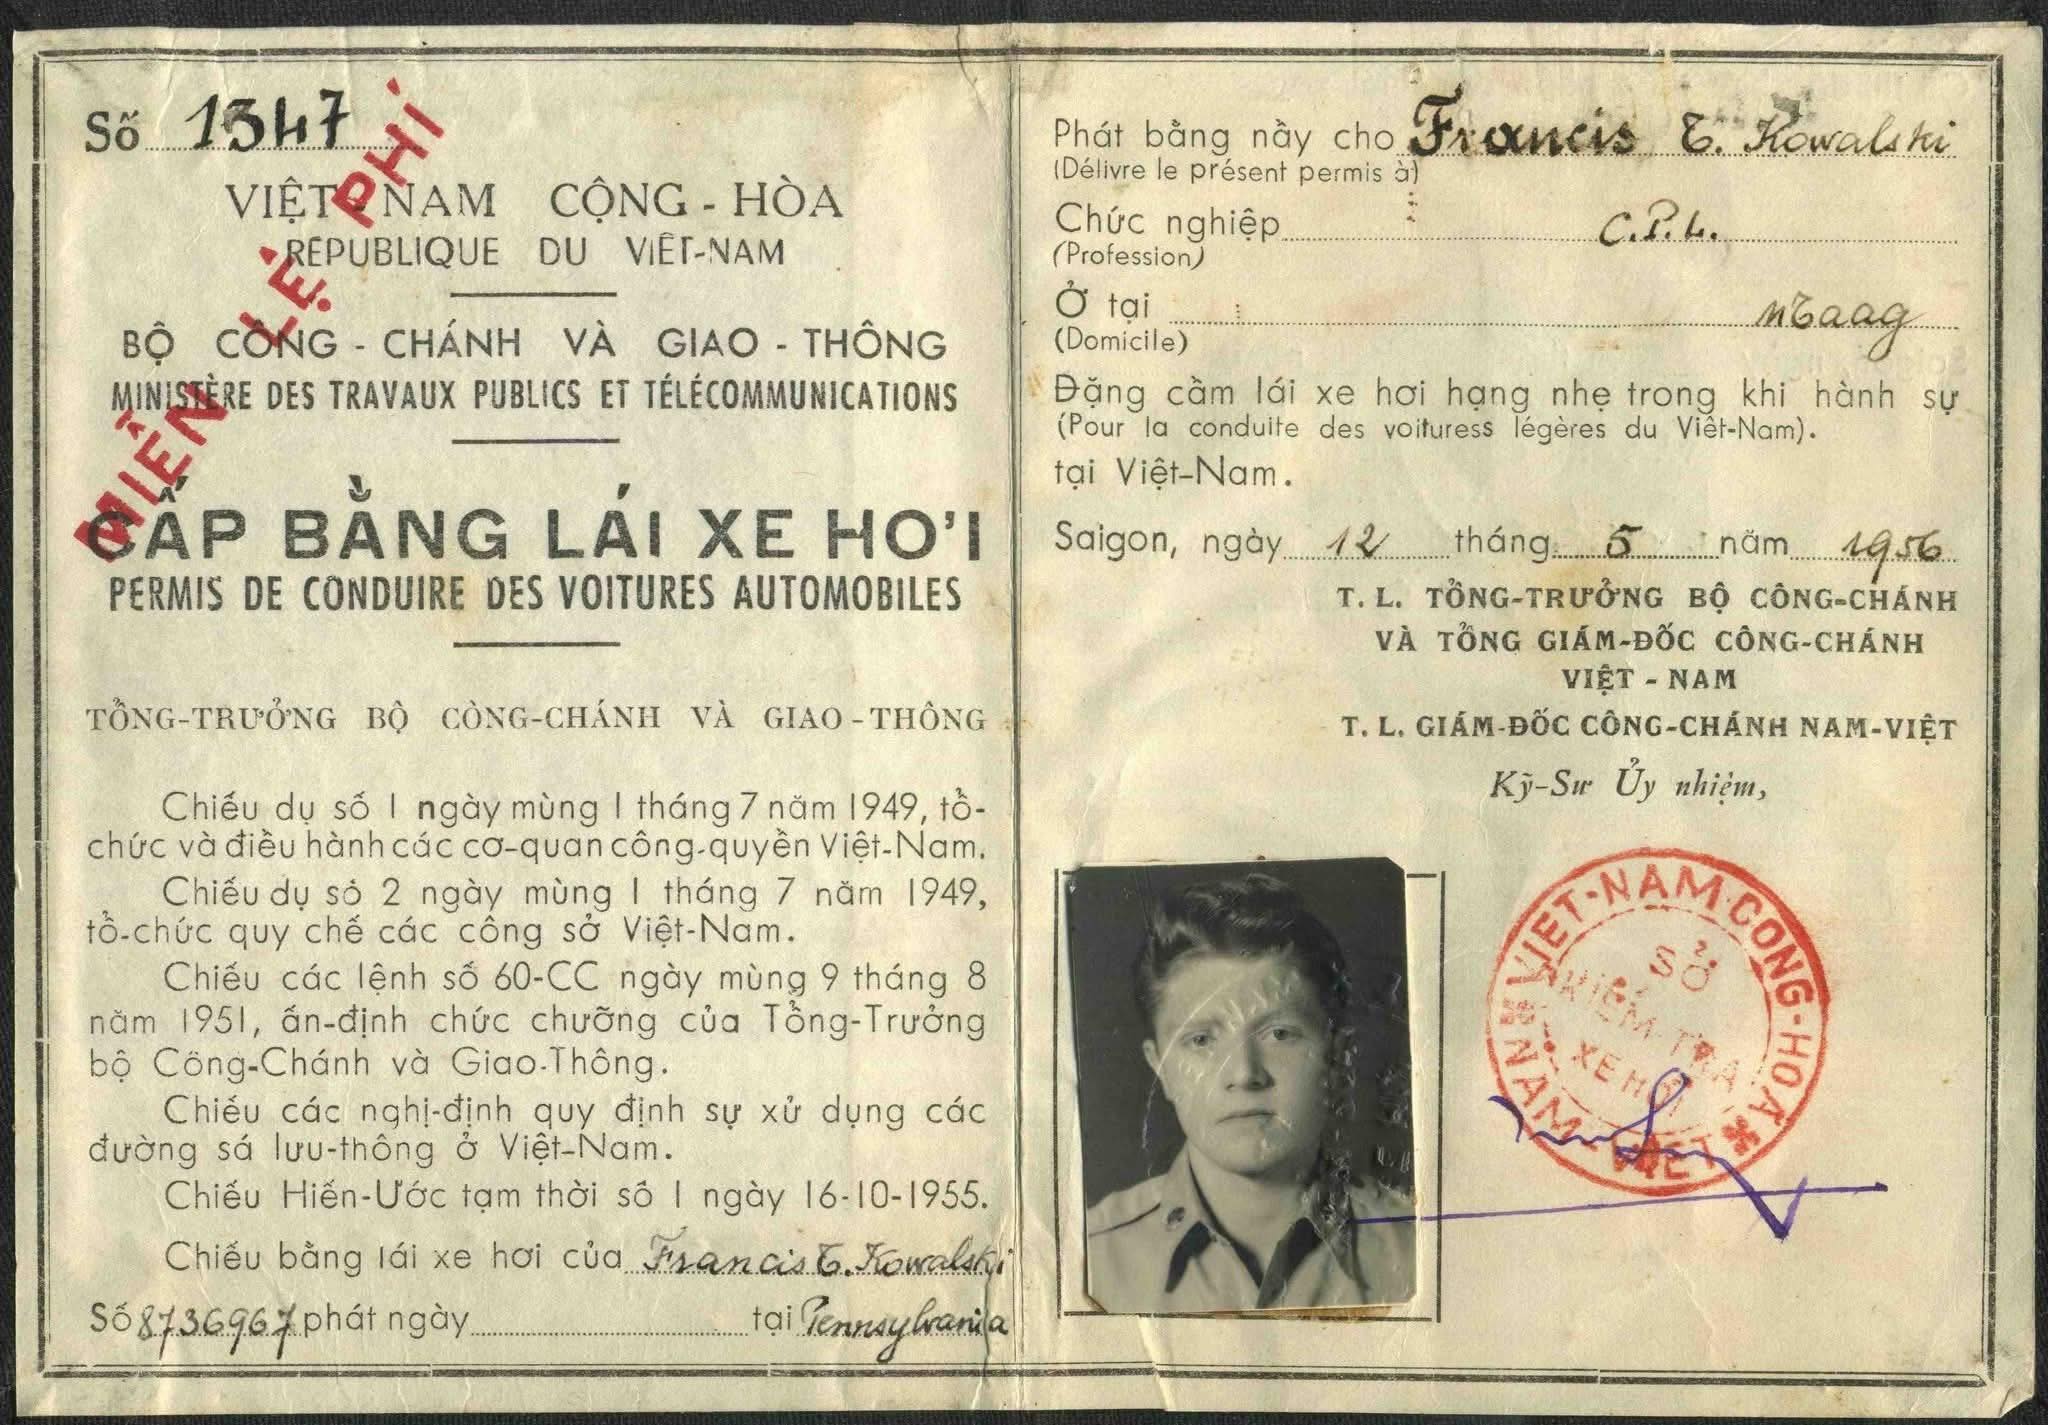 Số 1347
MIỄN LỆ PHÍ
VIỆT-NAM CỘNG-HÒA
RÉPUBLIQUE DU VIÊT-NAM
BỘ CÔNG-CHÁNH VÀ GIAO-THÔNG
MINISTÈRE DES TRAVAUX PUBLICS ET TÉLÉCOMMUNICATIONS
CẤP BẰNG LÁI XE HƠI
PERMIS DE CONDUIRE DES VOITURES AUTOMOBILES
TỔNG-TRƯỞNG BỘ CÒNG-CHÁNH VÀ GIAO-THÔNG
Chiếu dụ số 1 ngày mùng 1 tháng 7 năm 1949, tổ-
chức và điều hành các cơ-quan công-quyền Việt-Nam.
Chiếu dụ số 2 ngày mùng 1 tháng 7 năm 1949,
tổ-chức quy chế các công sở Việt-Nam.
Chiếu các lệnh số 60-CC ngày mùng 9 tháng 8
năm 1951, ấn-định chức chưởng của Tổng-Trưởng
bộ Công-Chánh và Giao-Thông.
Chiếu các nghị-định quy định sự xử dụng các
đường sá lưu-thông ở Việt-Nam.
Chiếu Hiến-Ước tạm thời số 1 ngày 16-10-1955.
Chiếu bằng lái xe hơi của Francis T. Kowalski
Số 8736967 phát ngày tại Pennsylvania
Phát bằng nầy cho Francis T. Kowalski
(Délivre le présent permis à)
Chức nghiệp C.P.L.
(Profession)
Ở tại MTaag
(Domicile)
Đặng cầm lái xe hơi hạng nhẹ trong khi hành sự
(Pour la conduite des voituress légères du Viêt-Nam).
tại Việt-Nam.
Saigon, ngày 12 tháng 5 năm 1956
T. L. TỔNG-TRƯỞNG BỘ CÔNG-CHÁNH
VÀ TỔNG GIÁM-ĐỐC CÔNG-CHÁNH
VIỆT-NAM
T. L. GIÁM-ĐỐC CÔNG-CHÁNH NAM-VIỆT
Kỹ-Sư Ủy nhiệm,
VIỆT-NAM CỘNG-HOÀ
SỞ
KIỂM-TRA
XE HƠI
NAM-VIỆT